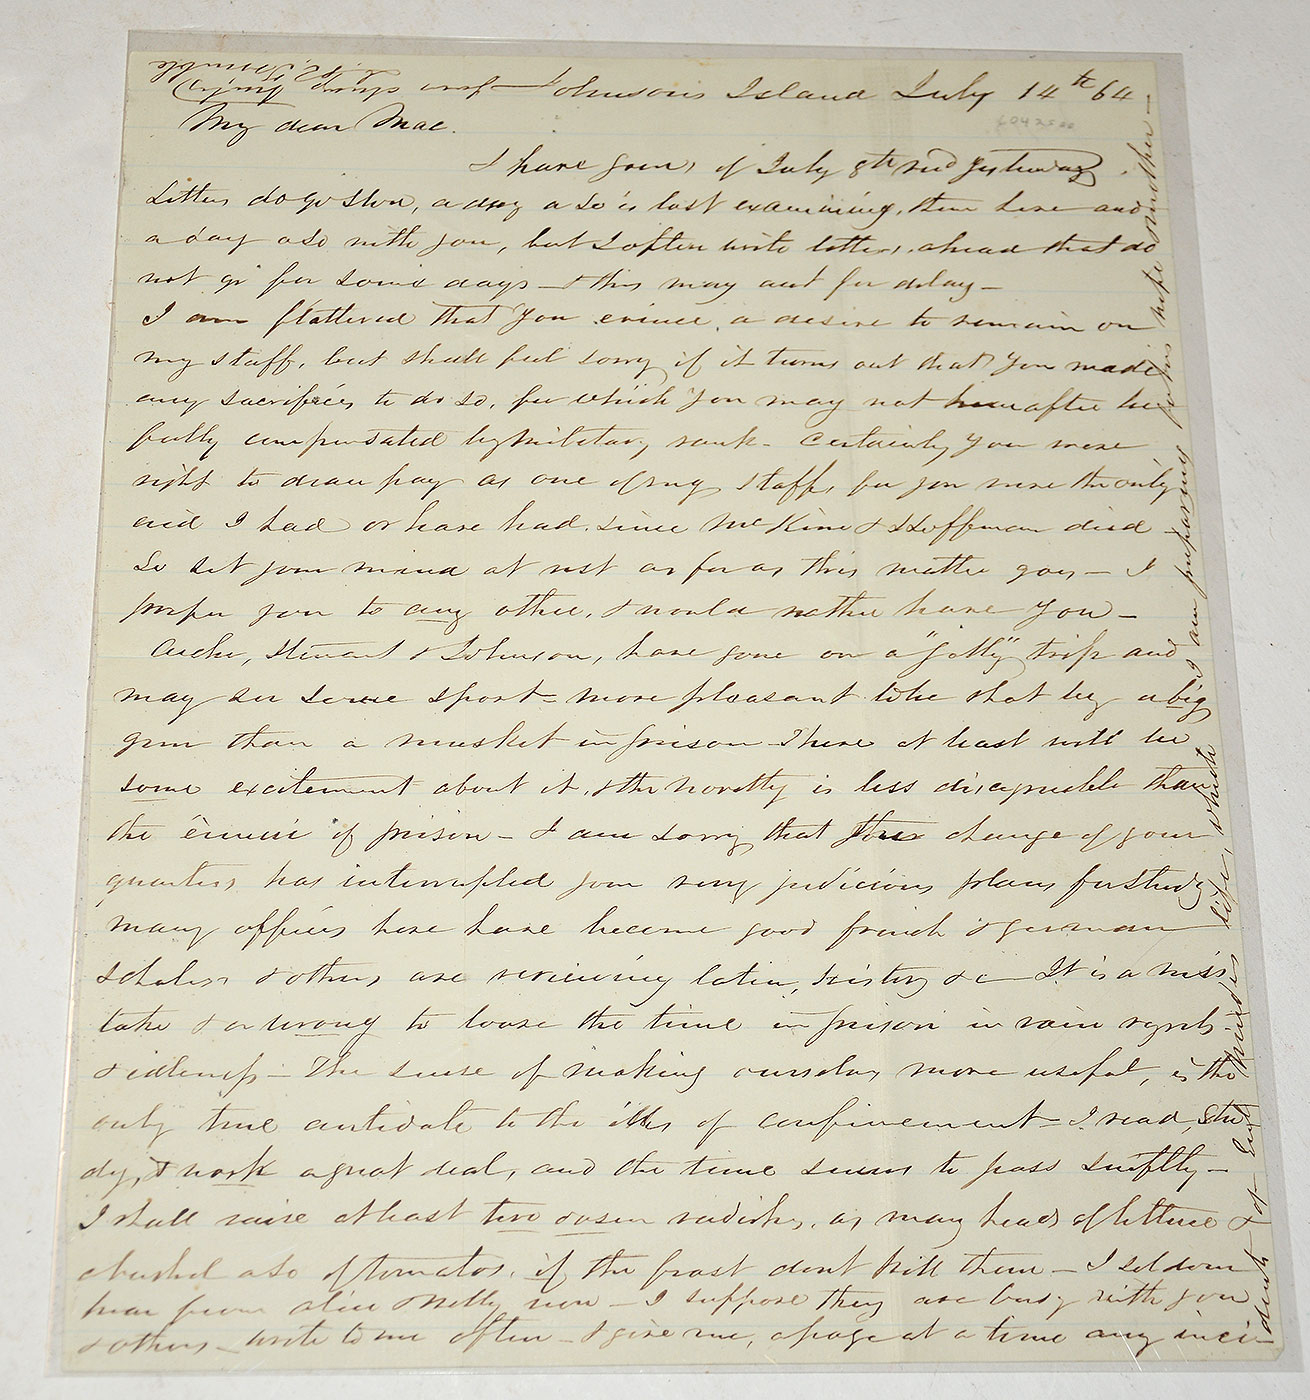 Johnson's Island July 14th 64
My dear Mac.
I have yours of July 8th recd yesterday.
Letters do go slow, a day or so is lost examining them here and
a day also with you, but I often write letters ahead that do
not go for some days — & this may acct for delay —
I am flattered that you evince a desire to remain on
my staff, but shall feel sorry if it turns out that you made
any sacrifices to do so, for which you may not hereafter be
fully compensated by military rank — Certainly you were
right to draw pay as one of my staff, for you were the only
aid I had or have had since McKim & Hoffman died —
So set your mind at rest as far as this matter goes — I
prefer you to any other, & would rather have you —
Archer, Stewart & Johnson, have gone on a "jolly" trip and
may see some sport — more pleasant to be shot by a big
gun than a musket in prison There at least will be
some excitement about it, & the novelty is less disagreeable than
the ennui of prison — I am sorry that change of your
quarters has interrupted your very judicious plans for study
many officers here have become good french & german
scholars & others are reviewing latin, history &c — It is a miss
take & a wrong to loose the time in prison in vain regrets
& idleness — The sense of making ourselves more useful, is the
only true antidote to the ills of confinement — I read, stu
dy, & work a great deal, and the time seems to pass swiftly —
I shall raise at least two dozen radishes, as many heads of lettuce &
a bushel also of tomatos, if the frost dont kill them — I seldom
hear from alice & Nelly now — I suppose they are busy with you
& others — write to me often — & give me, a page at a time any inci-
dents of life, which I am preparing for his mother —
I. R. Trimble